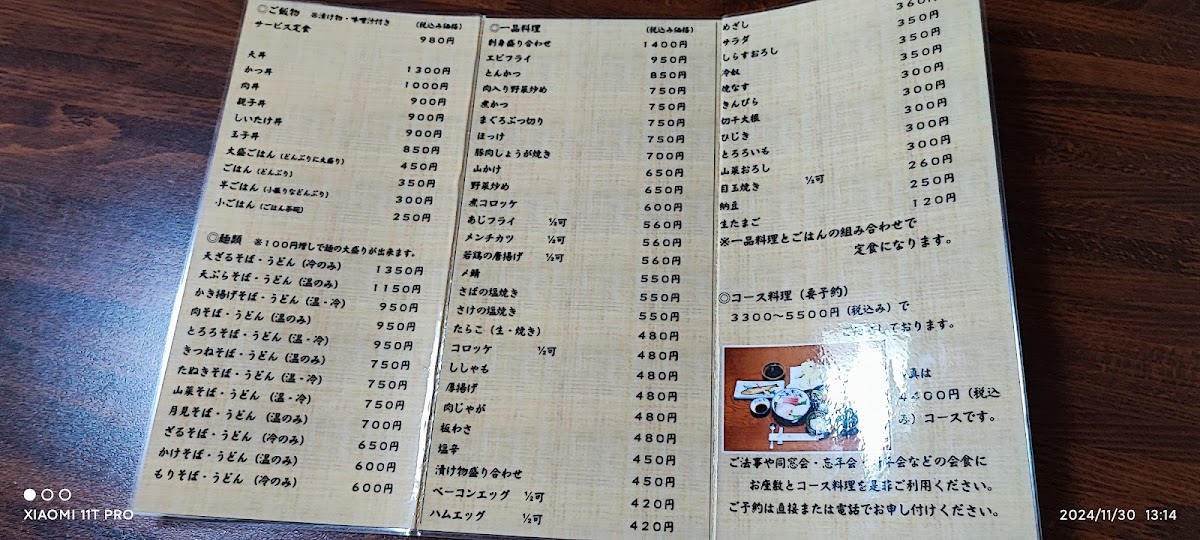 ◎ご飯物 ※漬け物・味噌汁付き (税込み価格)
サービス定食 980円
天丼 1300円
かつ丼 1000円
肉丼 900円
親子丼 900円
しいたけ丼 900円
玉子丼 850円
大盛ごはん (どんぶりに大盛り) 450円
ごはん (どんぶり) 350円
半ごはん (小振りなどんぶり) 300円
小ごはん (ごはん茶碗) 250円
◎麺類 ※100円増しで麺の大盛りが出来ます。
天ざるそば・うどん (冷のみ) 1350円
天ぷらそば・うどん (温のみ) 1150円
かき揚げそば・うどん (温・冷) 950円
肉そば・うどん (温のみ) 950円
とろろそば・うどん (温・冷) 950円
きつねそば・うどん (温のみ) 750円
たぬきそば・うどん (温・冷) 750円
山菜そば・うどん (温・冷) 750円
月見そば・うどん (温のみ) 700円
ざるそば・うどん (冷のみ) 650円
かけそば・うどん (温のみ) 600円
もりそば・うどん (冷のみ) 600円
◎一品料理 (税込み価格)
刺身盛り合わせ 1400円
エビフライ 950円
とんかつ 850円
肉入り野菜炒め 750円
煮かつ 750円
まぐろぶつ切り 750円
ほっけ 750円
豚肉しょうが焼き 700円
山かけ 650円
野菜炒め 650円
煮コロッケ 600円
あじフライ ½可 560円
メンチカツ ½可 560円
若鶏の唐揚げ ½可 560円
〆鯖 550円
さばの塩焼き 550円
さけの塩焼き 550円
たらこ (生・焼き) 480円
コロッケ ½可 480円
ししゃも 480円
厚揚げ 480円
肉じゃが 480円
板わさ 480円
塩辛 450円
漬け物盛り合わせ 450円
ベーコンエッグ ½可 420円
ハムエッグ ½可 420円
めざし
サラダ 360円
しらすおろし 350円
冷奴 350円
焼なす 350円
きんぴら 300円
切干大根 300円
ひじき 300円
とろろいも 300円
山菜おろし 300円
目玉焼き ½可 260円
納豆 250円
生たまご 120円
※一品料理とごはんの組み合わせで
定食になります。
◎コース料理 (要予約)
3300～5500円 (税込み) で
しております。
真は
4400円 (税込
み) コースです。
ご法事や同窓会・忘年会・年会などの会食に
お座敷とコース料理を是非ご利用ください。
ご予約は直接または電話でお申し付けください。
XIAOMI 11T PRO
2024/11/30 13:14